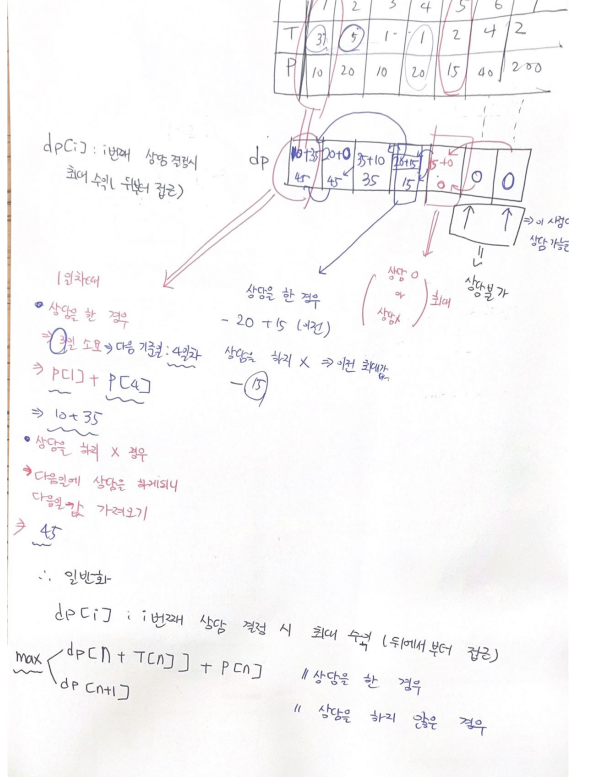 1 2 3 4 5 6 7
T 3 5 1 1 2 4 2
P 10 20 10 20 15 40 200
dp 10+35 20+0 35+10 20+15 15+0 0 0
45 45 35 15 0
dp[i] : i번째 상담 결정시
최대 수익( 뒤부터 접근)
⇒ 이 시점에
상담 가능
상담불가
상담 O
or
상담X
최대
1일차때
• 상담을 한 경우
⇒ 3일 소요 → 다음 기준일 : 4일차
⇒ P[1] + P[4]
⇒ 10+35
• 상담을 하지 X 경우
→ 다음날에 상담을 하게되니
다음날 값 가져오기
⇒ 45
상담을 한 경우
- 20 + 15 (이전)
상담을 하지 X ⇒ 이전 최대값
- 15
∴ 일반화
dp[i] : i번째 상담 결정 시 최대 수익 (뒤에서부터 접근)
max dp[n + T[n]] + P[n] // 상담을 한 경우
dp[n+1] // 상담을 하지 않은 경우